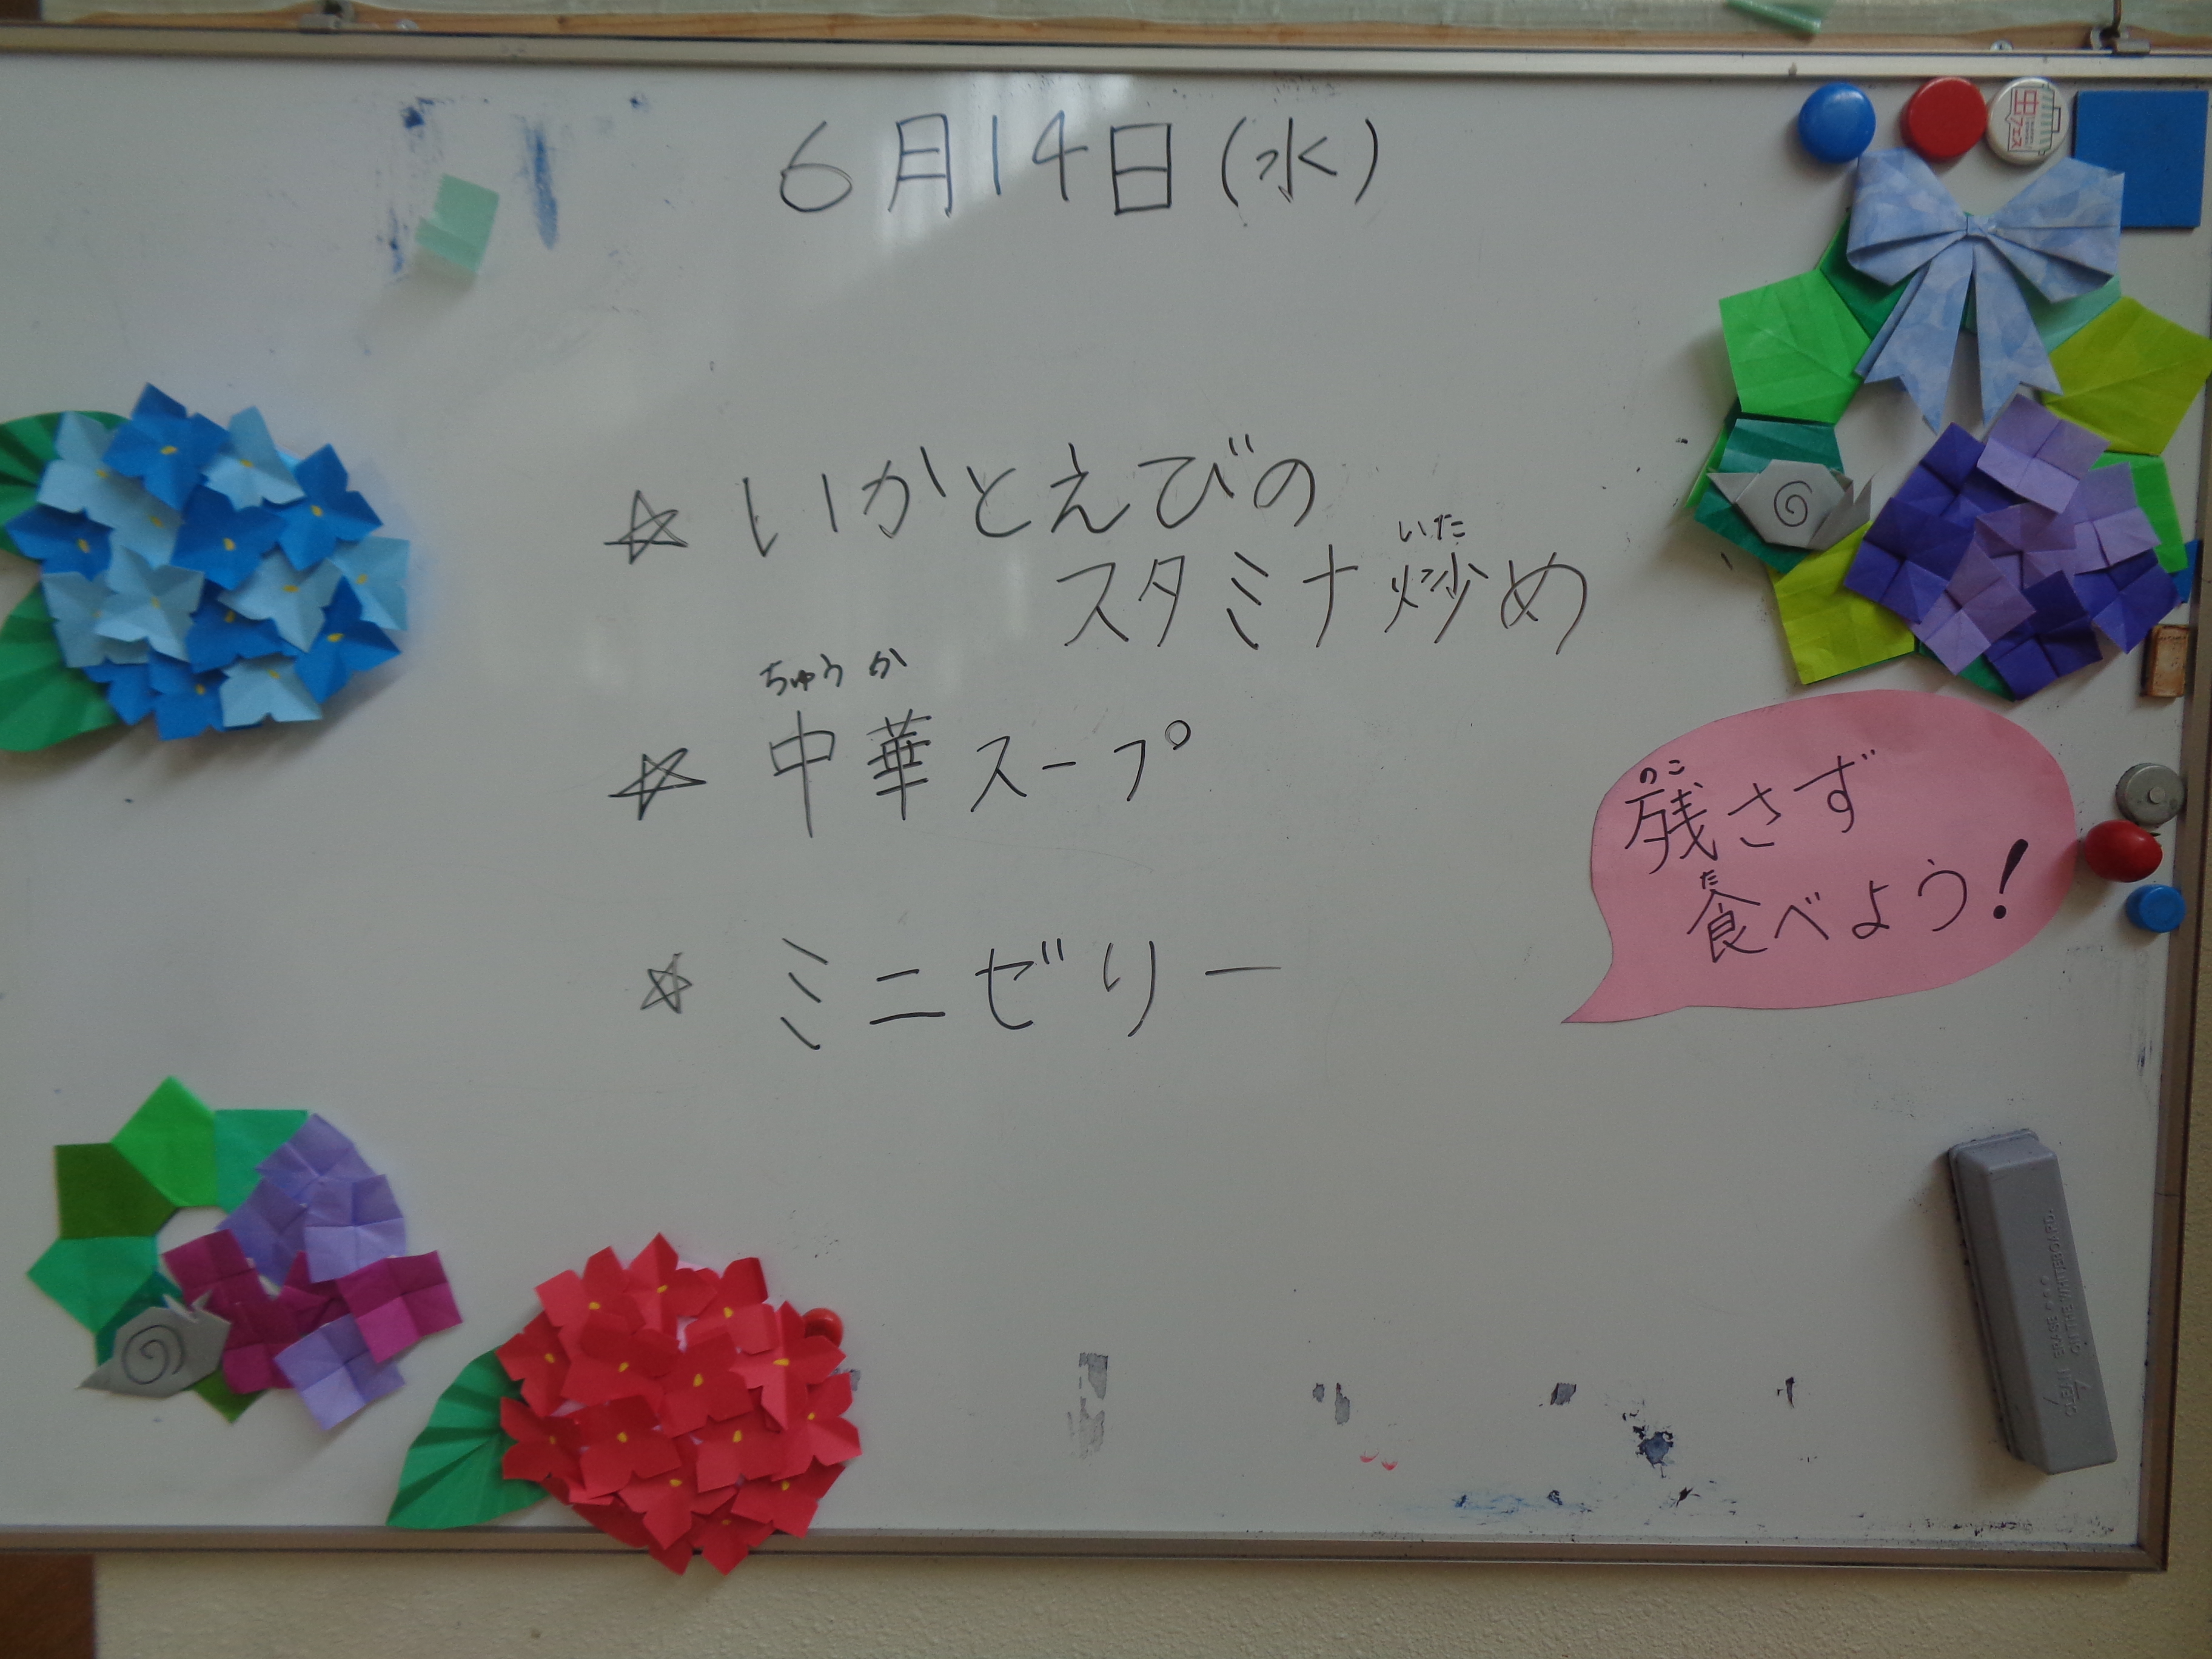 6月14日(水)
☆ いかとえびの
いた
スタミナ炒め
ちゅうか
☆ 中華スープ
☆ ミニゼリー
のこ
残さず
た
食べよう!